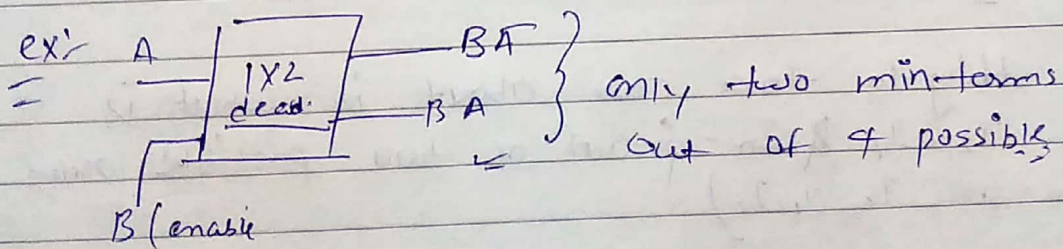 ex:- A 1X2 BĀ
decod. BA
only two min-terms
out of 4 possible
B (enable